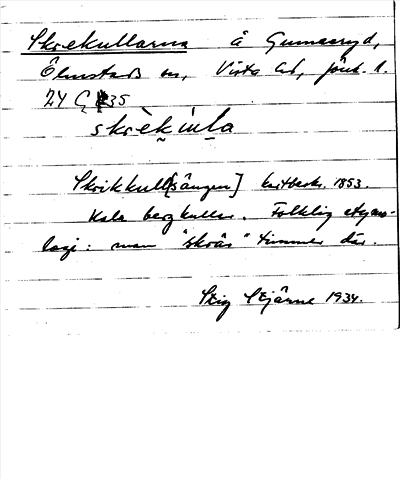 Skrekullarna å Gunnaryd,
Ölmstads sn, Vista hd, Jönk. l.
24 Ç 35
skrèkùla
Skrikkull[sängen] kartbeskr. 1853.
Kala bergkullar. Folklig etymo-
logi: man "skräs" timmer där.
Stig Stjärne 1934.